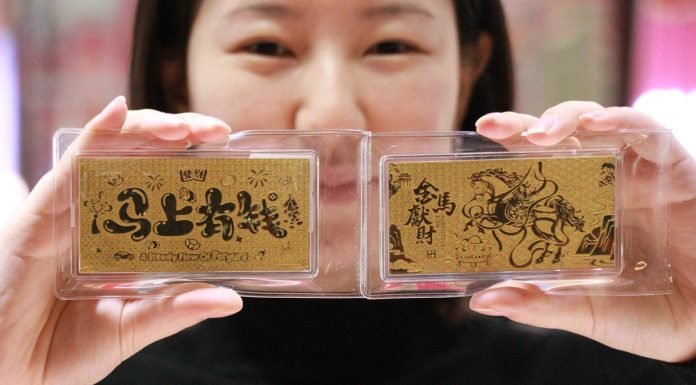 马上有钱
A Ready Flow Of Fortune
金馬
獻財